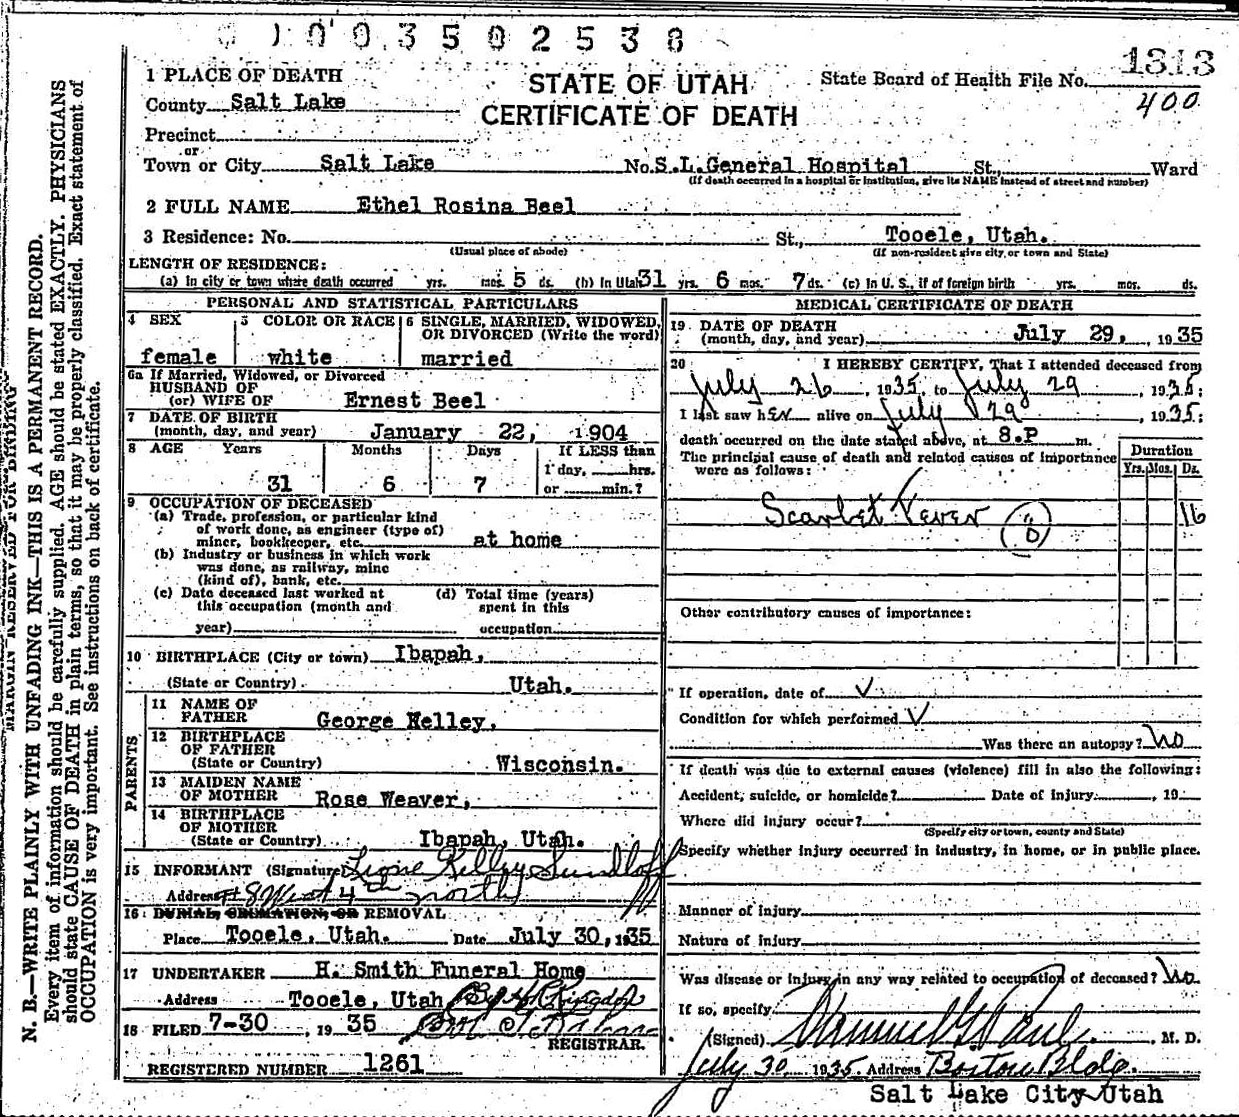 0003502538
1 PLACE OF DEATH
STATE OF UTAH
CERTIFICATE OF DEATH
State Board of Health File No. 1313
400
County Salt Lake
Precinct
or
Town or City Salt Lake No. S.L.General Hospital St., Ward
(If death occurred in a hospital or institution, give its NAME instead of street and number)
2 FULL NAME Ethel Rosina Beel
3 Residence: No. St., Tooele, Utah.
(Usual place of abode) (If non-resident give city, or town and State)
LENGTH OF RESIDENCE:
(a) In city or town where death occurred yrs. mos. 5 ds. (b) In Utah 31 yrs. 6 mos. 7 ds. (c) In U. S., if of foreign birth yrs. mos. ds.
PERSONAL AND STATISTICAL PARTICULARS
4 SEX 5 COLOR OR RACE 6 SINGLE, MARRIED, WIDOWED,
OR DIVORCED (Write the word)
female white married
6a If Married, Widowed, or Divorced
HUSBAND OF
(or) WIFE OF Ernest Beel
7 DATE OF BIRTH
(month, day, and year) January 22, 1904
8 AGE Years Months Days If LESS than
1 day, hrs.
31 6 7 or min.?
9 OCCUPATION OF DECEASED
(a) Trade, profession, or particular kind
of work done, as engineer (type of)
miner, bookkeeper, etc. at home
(b) Industry or business in which work
was done, as railway, mine
(kind of), bank, etc.
(c) Date deceased last worked at (d) Total time (years)
this occupation (month and spent in this
year) occupation
10 BIRTHPLACE (City or town) Ibapah,
(State or Country) Utah.
PARENTS
11 NAME OF
FATHER George Kelley,
12 BIRTHPLACE
OF FATHER
(State or Country) Wisconsin.
13 MAIDEN NAME
OF MOTHER Rose Weaver,
14 BIRTHPLACE
OF MOTHER
(State or Country) Ibapah, Utah.
15 INFORMANT (Signature) Lione Kelley Sundloff
Address 48 West 4th north
16 BURIAL, CREMATION, OR REMOVAL
Place Tooele, Utah. Date July 30, 1935
17 UNDERTAKER H. Smith Funeral Home
Address Tooele, Utah
18 FILED 7-30, 1935
REGISTRAR.
REGISTERED NUMBER 1261
MEDICAL CERTIFICATE OF DEATH
19 DATE OF DEATH
(month, day, and year) July 29, 1935
20 I HEREBY CERTIFY, That I attended deceased from
July 26, 1935, to July 29, 1935;
I last saw her alive on July 29, 1935;
death occurred on the date stated above, at 8.P m.
The principal cause of death and related causes of importance
were as follows:
Duration
Yrs. Mos. Ds.
Scarlet Fever 16
Other contributory causes of importance:
If operation, date of V
Condition for which performed V
Was there an autopsy? No
If death was due to external causes (violence) fill in also the following:
Accident, suicide, or homicide? Date of injury , 19
Where did injury occur?
(Specify city or town, county and State)
Specify whether injury occurred in industry, in home, or in public place.
Manner of injury
Nature of injury
Was disease or injury in any way related to occupation of deceased? No.
If so, specify
(Signed) , M. D.
July 30, 1935 Address Boston Bldg.
Salt Lake City Utah
MARGIN RESERVED FOR BINDING
N. B.—WRITE PLAINLY WITH UNFADING INK—THIS IS A PERMANENT RECORD.
Every item of information should be carefully supplied. AGE should be stated EXACTLY. PHYSICIANS
should state CAUSE OF DEATH in plain terms, so that it may be properly classified. Exact statement of
OCCUPATION is very important. See instructions on back of certificate.